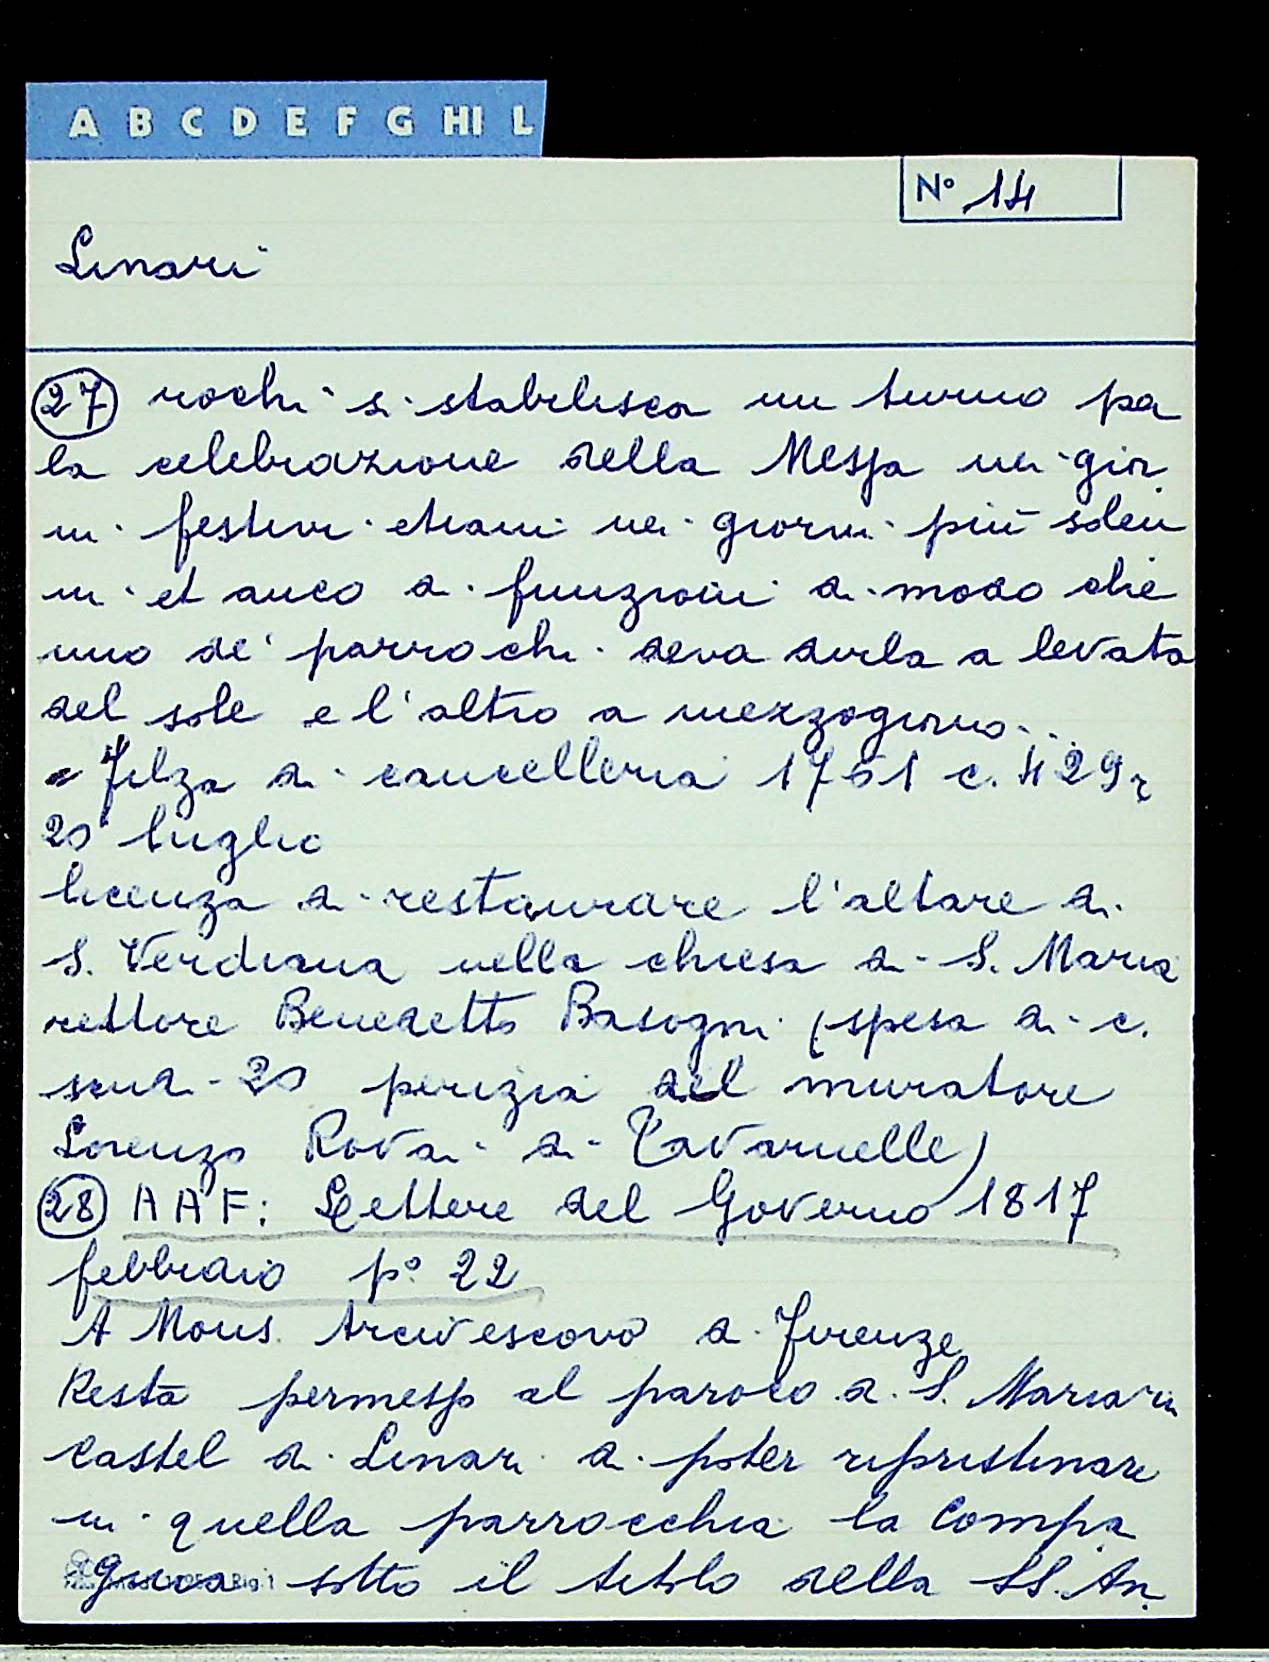 A B C D E F G HI L
N° 14
Linari
27 rochi si stabilisca un turno pa
la celebrazione della Messa nei gior
ni festivi etiam nei giorni più solen
ni et anco di funzioni di modo che
uno de' parrochi deva dirla a levata
del sole e l'altro a mezzogiorno...
Filza di cancelleria 1761 c. 429r
20 luglio
licenza di restaurare l'altare di
S. Verdiana nella chiesa di S. Maria
rettore Benedetto Basogni (spesa di c.
scudi 20 perizia del muratore
Lorenzo Rovai di Tavarnelle)
28 AAF: Lettere del Governo 1817
febbraio p° 22
A Mons. Arcivescovo di Firenze
Resta permesso al paroco di S. Maria in
Castel di Linari di poter ripristinare
in quella parrocchia la Compa
gnia sotto il titolo della SS. An.
Rig. 1